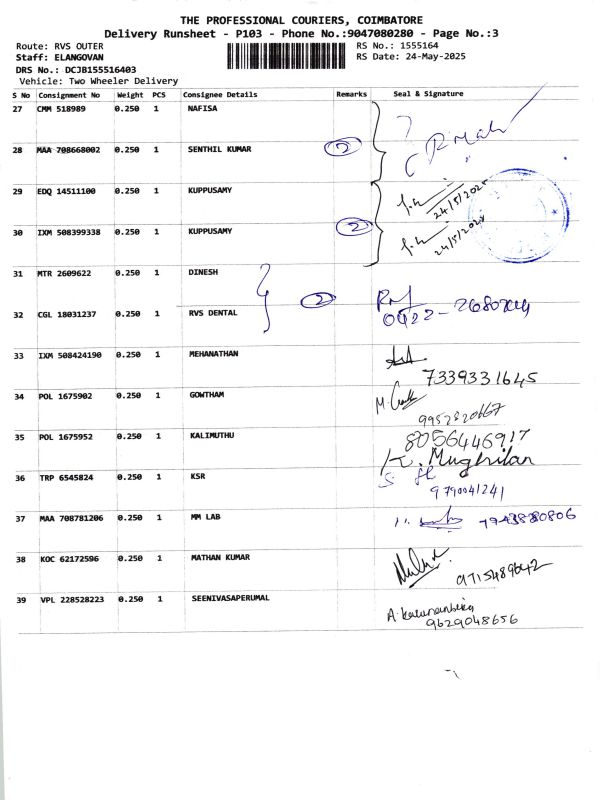 THE PROFESSIONAL COURIERS, COIMBATORE
Delivery Runsheet - P103 - Phone No.:9047080280 - Page No.:3
Route: RVS OUTER
RS No.: 1555164
Staff: ELANGOVAN
RS Date: 24-May-2025
DRS No.: DCJB155516403
Vehicle: Two Wheeler Delivery
S No Consignment No Weight PCS Consignee Details Remarks Seal & Signature
27 CMM 518989 0.250 1 NAFISA
28 MAA 708668002 0.250 1 SENTHIL KUMAR 2
29 EDQ 14511100 0.250 1 KUPPUSAMY 24/5/2025
30 IXM 508399338 0.250 1 KUPPUSAMY 2 24/5/2025
31 MTR 2609622 0.250 1 DINESH
2
32 CGL 18031237 0.250 1 RVS DENTAL
33 IXM 508424190 0.250 1 MEHANATHAN
7339331645
34 POL 1675902 0.250 1 GOWTHAM
9952820667
35 POL 1675952 0.250 1 KALIMUTHU 8056446917
K. Mughilan
36 TRP 6545824 0.250 1 KSR
9790041241
37 MAA 708781206 0.250 1 MM LAB
38 KOC 62172596 0.250 1 MATHAN KUMAR
9715489642
39 VPL 228528223 0.250 1 SEENIVASAPERUMAL
9629048656